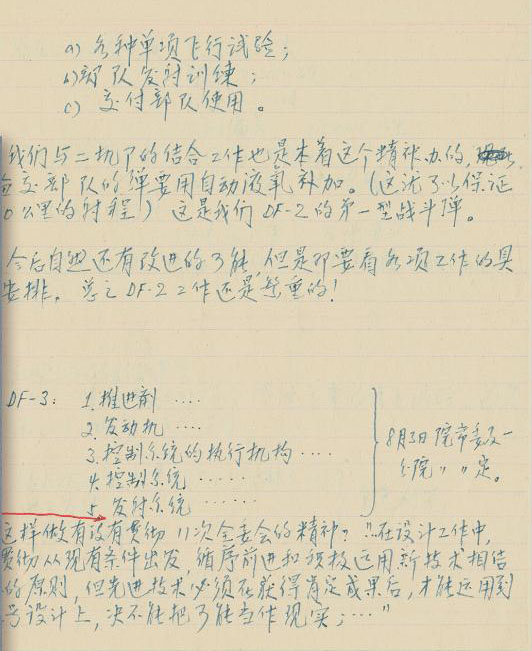 a) 各种单项飞行试验；
b) 部队发射训练；
c) 交付部队使用。
我们与二机下的结合工作也是本着这个精神办的，
交部队的弹要用自动液氧补加。（这就可以保证
0公里的射程）这是我们DF-2的第一型战斗弹。
今后自然还有改进的可能，但是那要看各项工作的具
安排。总之DF-2工作还是繁重的！
DF-3：
1. 推进剂 ····
2. 发动机 ····
3. 控制系统的执行机构 ····
4. 控制系统 ······
5. 发射系统 ······
8月3日院常委及一
分院〃〃定。
这样做有没有贯彻11次全委会的精神？“在设计工作中，
贯彻从现有条件出发，循序前进和积极运用新技术相结
的原则，但先进技术必须在获得肯定成果后，才能运用到
号设计上，决不能把可能当作现实；····”